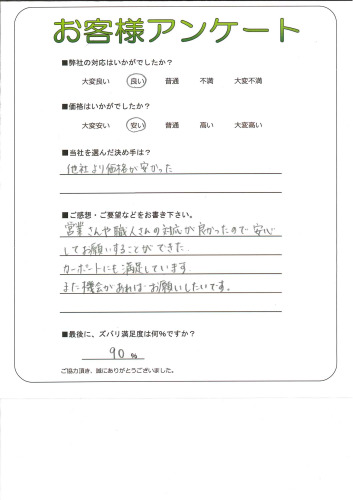 お客様アンケート
■弊社の対応はいかがでしたか?
大変良い 良い 普通 不満 大変不満
■価格はいかがでしたか?
大変安い 安い 普通 高い 大変高い
■当社を選んだ決め手は?
他社より価格が安かった
■ご感想・ご要望などをお書き下さい。
営業さんや職人さんの対応が良かったので安心
してお願いすることができた。
カーポートにも満足しています。
また機会があればお願いしたいです。
■最後に、ズバリ満足度は何%ですか?
90 %
ご協力頂き、誠にありがとうございました。